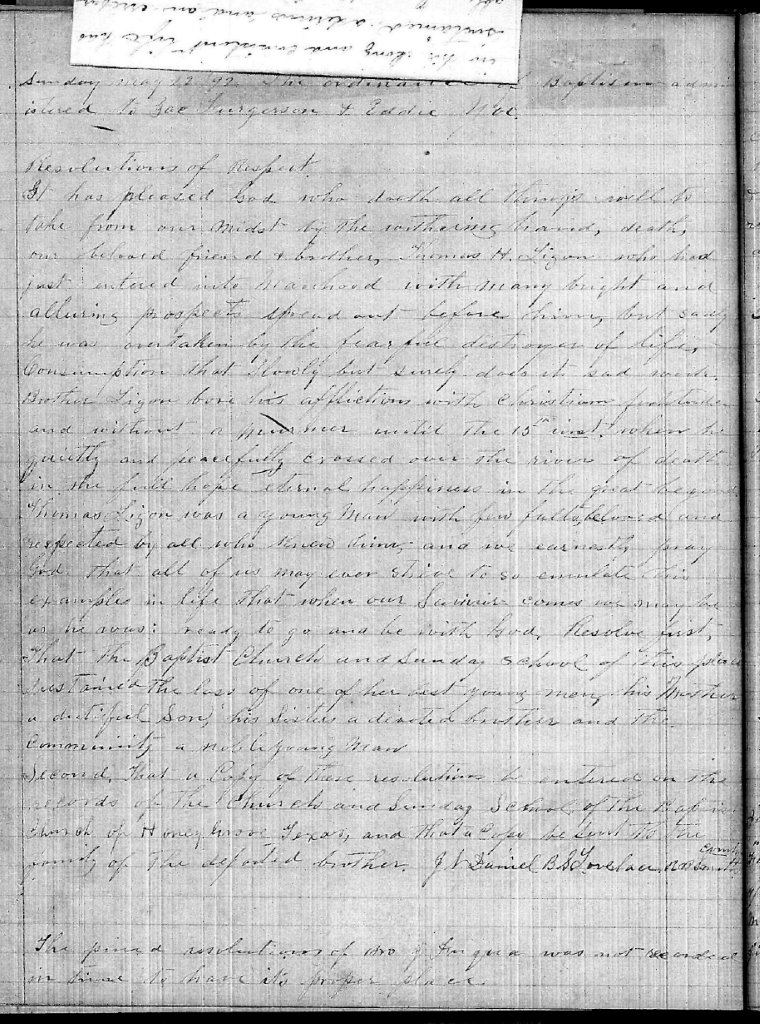 in his long and consistent life has
sustained a
Sunday May 22 92 The ordinance of Baptism admin
istered to Zoe Furgerson & Eddie
Resolutions of Respect
It has pleased God who doeth all things well to
take from our midst by the withering hand, death,
our beloved friend & brother, Thomas H. Ligon who had
just entered into Manhood with many bright and
alluring prospects spread out before him, but sadly
he was overtaken by the fearful destroyer of life,
Consumption that slowly but surely does it sad work.
Brother Ligon bore his afflictions with Christian fortitude
and without a murmer until the 15th inst. when he
quietly and peacefully crossed over the river of death
in the full hope eternal happiness in the great beyond
Thomas Ligon was a young Man with few faults, beloved and
respected by all who knew him, and we earnestly pray
God that all of us may ever strive to so emulate his
examples in life that when our Savior comes we may be
as he was: ready to go and be with God. Resolve first,
That the Baptist Church and Sunday School of this place
sustained the loss of one of her best young men, his Mother
a dutiful Son, his Sisters a devoted brother and the
Community a noble young Man
Second, That a Copy of these resolutions be entered on the
records of the Church and Sunday School of the Baptist
Church of Honey Grove Texas, and that a Copy be sent to the
family of the departed brother. J W Daniel B S Lovelace Com
The resolutions of Bro J Fuqua was not recorded
in time to have its proper place.